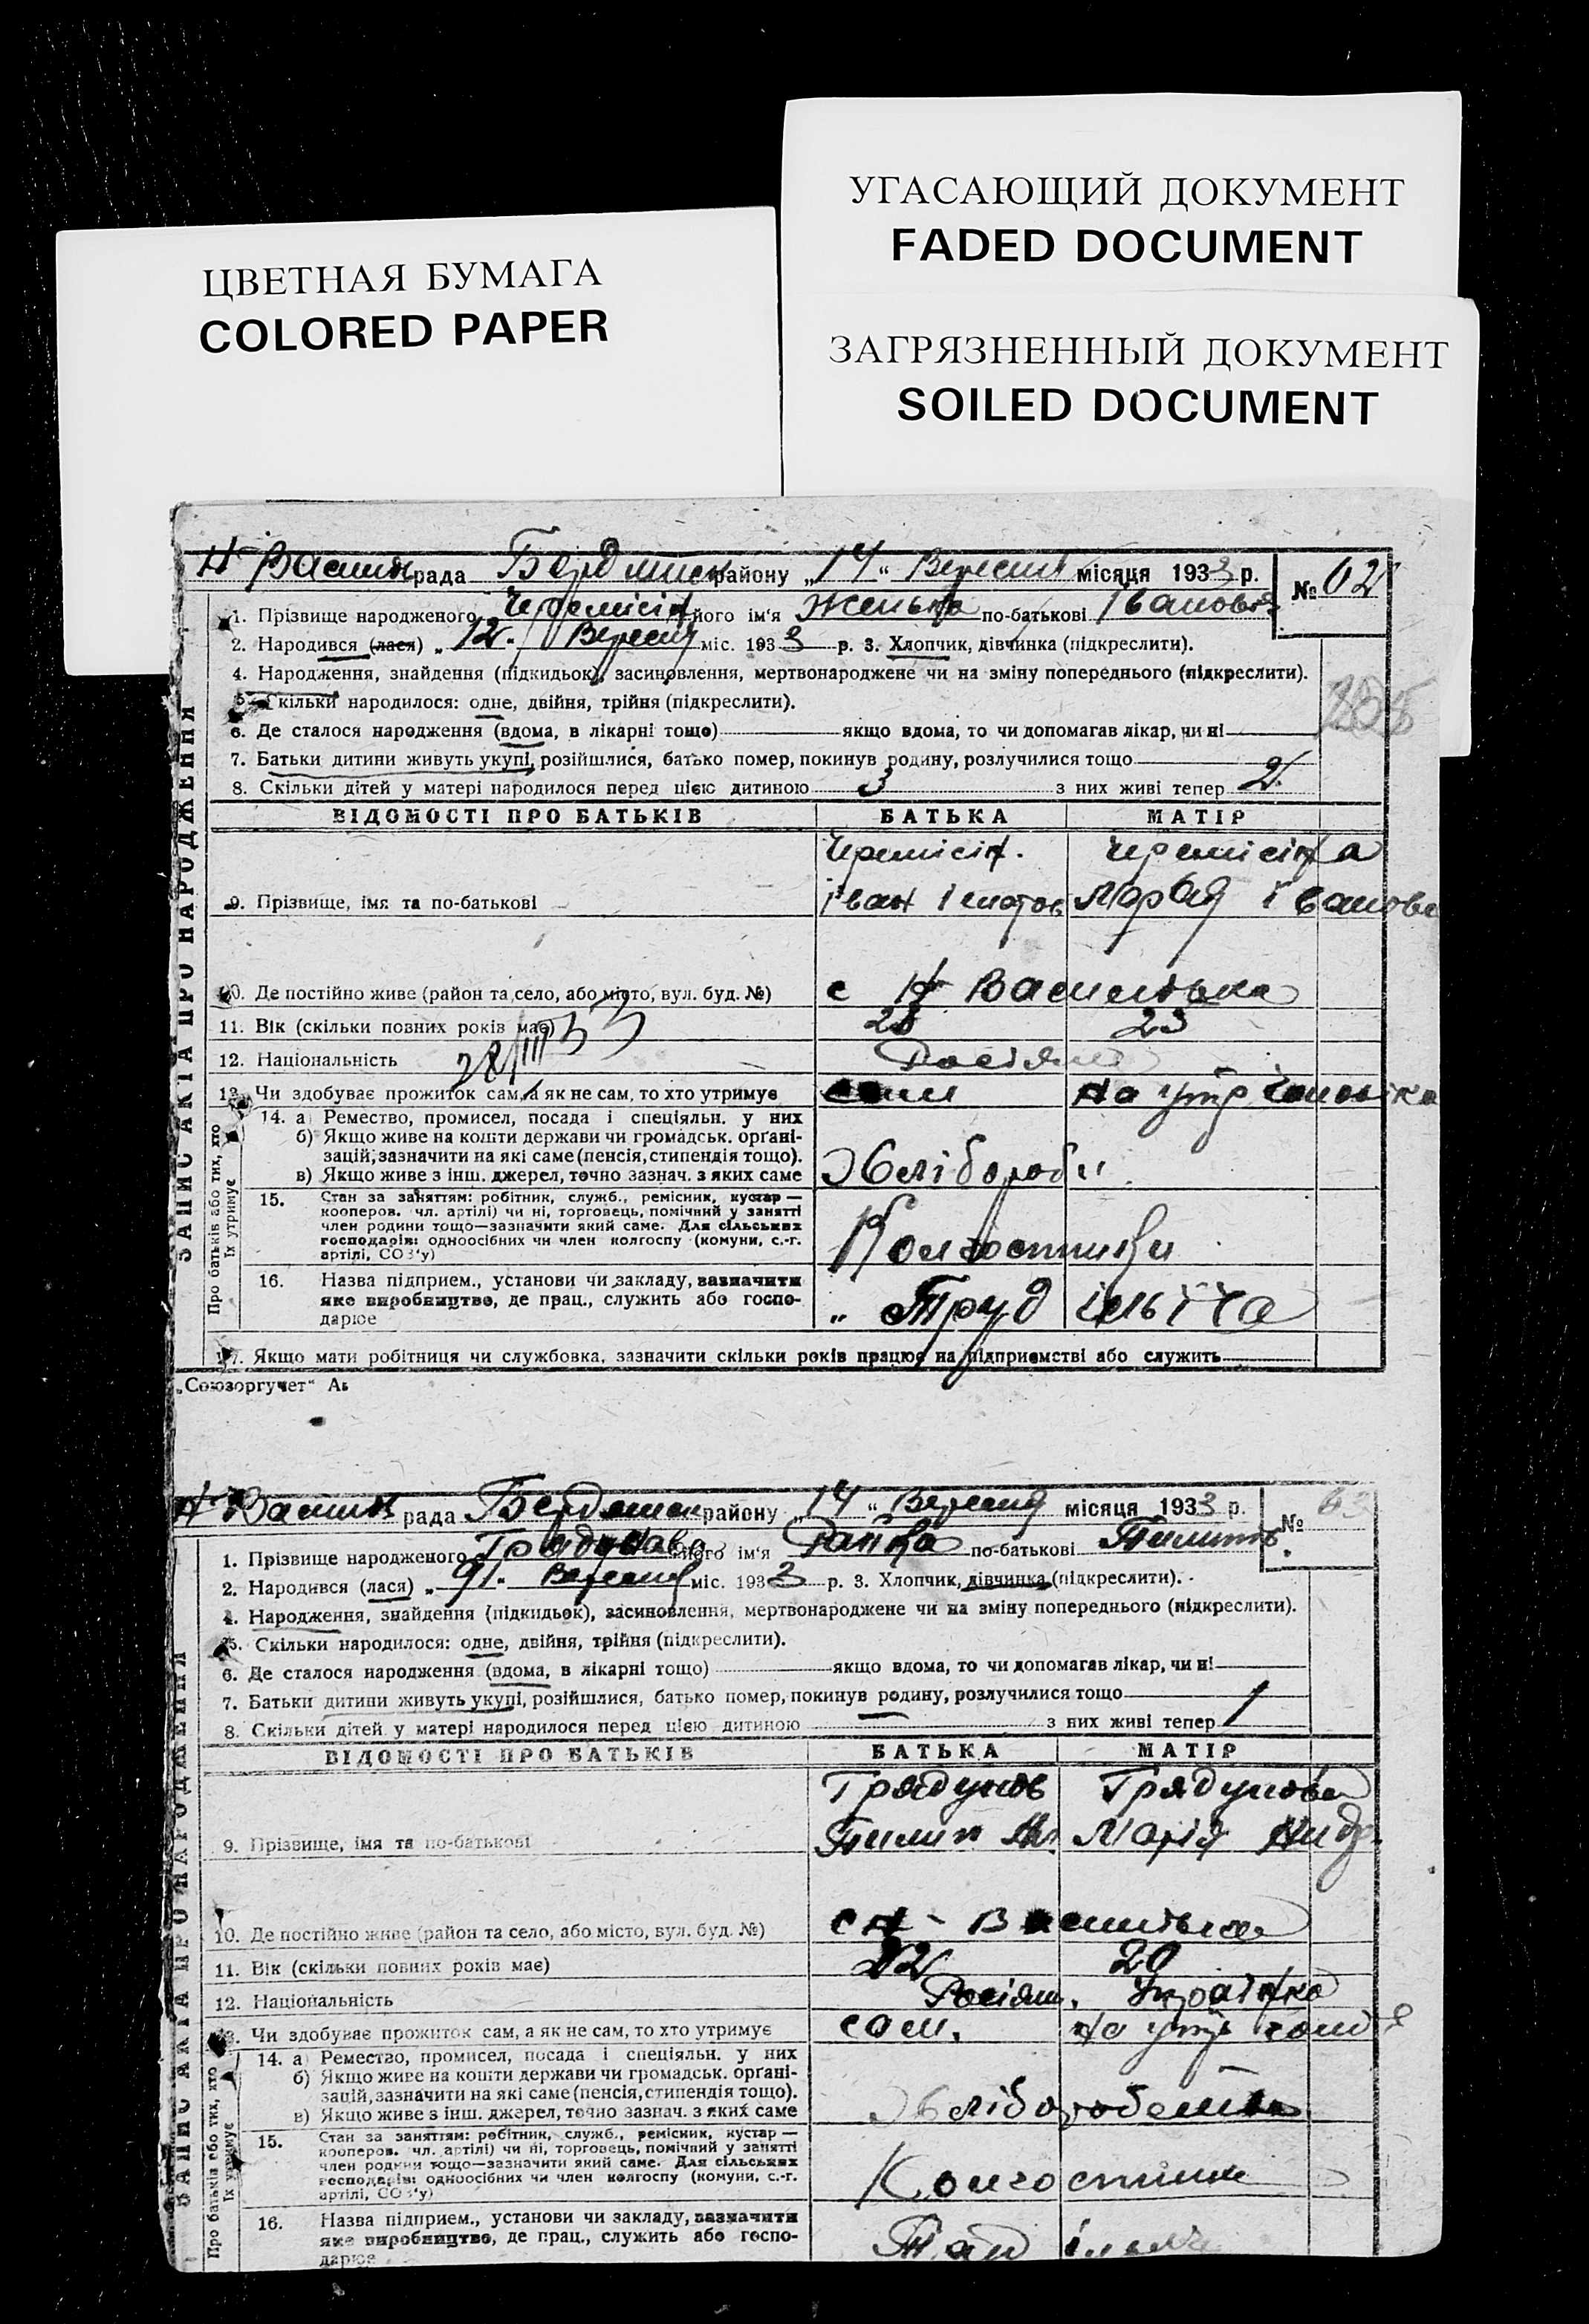 УГАСАЮЩИЙ ДОКУМЕНТ
FADED DOCUMENT
ЦВЕТНАЯ БУМАГА
COLORED PAPER
ЗАГРЯЗНЕННЫЙ ДОКУМЕНТ
SOILED DOCUMENT
рада району „14“ Вересня місяця 1933 р. № 62
1. Прізвище народженого його ім‘я Женька по-батькові
2. Народився (лася) „12. Вересня міс. 1933 р. 3. Хлопчик, дівчинка (підкреслити).
4. Народження, знайдення (підкидьок), засиновлення, мертвонароджене чи на зміну попереднього (підкреслити).
5. Скільки народилося: одне, двійня, трійня (підкреслити).
6. Де сталося народження (вдома, в лікарні тощо) якщо вдома, то чи допомагав лікар, чи ні
7. Батьки дитини живуть укупі, розійшлися, батько помер, покинув родину, розлучилися тощо
8. Скільки дітей у матері народилося перед цією дитиною 3 з них живі тепер 2
ЗАПИС АКТА ПРО НАРОДЖЕННЯ
ВІДОМОСТІ ПРО БАТЬКІВ БАТЬКА МАТІР
9. Прізвище, імя та по-батькові
Іван
10. Де постійно живе (район та село, або місто, вул. буд. №) с Н Василівка
11. Вік (скільки повних років має) 28 23
12. Національність
28/III 33
13. Чи здобуває прожиток сам, а як не сам, то хто утримує сам на утр чоловіка
Про батьків або тих, хто їх утримує
14. а) Ремество, промисел, посада і спеціяльн. у них
б) Якщо живе на кошти держави чи громадськ. орґані-
зацій, зазначити на які саме (пенсія, стипендія тощо).
в) Якщо живе з інш. джерел, точно зазнач. з яких саме Хлібороби
15. Стан за заняттям: робітник, служб., ремісник, кустар —
кооперов. чл. артілі) чи ні, торговець, помічний у занятті
член родини тощо—зазначити який саме. Для сільських
господарів: одноосібних чи член колгоспу (комуни, с.-г.
артілі, СОЗ'у) Колгоспники
16. Назва підприєм., установи чи закладу, зазначити
яке виробництво, де прац., служить або госпо-
дарює „Труд Ілліча
17. Якщо мати робітниця чи службовка, зазначити скільки років працює на підприємстві або служить
„Союзоргучет“
рада району „14“ Вересня місяця 1933 р. № 63
1. Прізвище народженого його ім‘я по-батькові
2. Народився (лася) „9. Вересня міс. 1933 р. 3. Хлопчик, дівчинка (підкреслити).
4. Народження, знайдення (підкидьок), засиновлення, мертвонароджене чи на зміну попереднього (підкреслити).
5. Скільки народилося: одне, двійня, трійня (підкреслити).
6. Де сталося народження (вдома, в лікарні тощо) якщо вдома, то чи допомагав лікар, чи ні
7. Батьки дитини живуть укупі, розійшлися, батько помер, покинув родину, розлучилися тощо
8. Скільки дітей у матері народилося перед цією дитиною — з них живі тепер 1
ЗАПИС АКТА ПРО НАРОДЖЕННЯ
ВІДОМОСТІ ПРО БАТЬКІВ БАТЬКА МАТІР
Грядунов Грядунова
9. Прізвище, імя та по-батькові Пилип Марія Андр.
10. Де постійно живе (район та село, або місто, вул. буд. №) с Н - Василівка
11. Вік (скільки повних років має) 22 20
12. Національність Росіян. Українка
13. Чи здобуває прожиток сам, а як не сам, то хто утримує сам. на утр
Про батьків або тих, хто їх утримує
14. а) Ремество, промисел, посада і спеціяльн. у них
б) Якщо живе на кошти держави чи громадськ. орґані-
зацій, зазначити на які саме (пенсія, стипендія тощо).
в) Якщо живе з інш. джерел, точно зазнач. з яких саме
15. Стан за заняттям: робітник, служб., ремісник, кустар —
кооперов. чл. артілі) чи ні, торговець, помічний у занятті
член родини тощо—зазначити який саме. Для сільських
господарів: одноосібних чи член колгоспу (комуни, с.-г.
артілі, СОЗ'у) Колгоспник
16. Назва підприєм., установи чи закладу, зазначити
яке виробництво, де прац., служить або госпо-
дарює